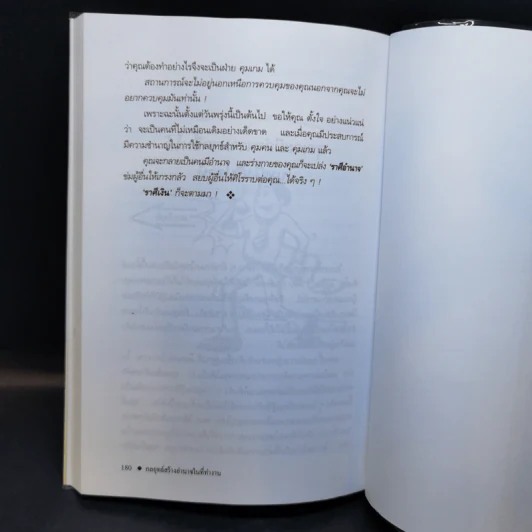 ว่าคุณต้องทำอย่างไรจึงจะเป็นฝ่าย คุมเกม ได้
สถานการณ์จะไม่อยู่นอกเหนือการควบคุมของคุณนอกจากคุณจะไม่
อยากควบคุมมันเท่านั้น !
เพราะฉะนั้นตั้งแต่วันพรุ่งนี้เป็นต้นไป ขอให้คุณ ตั้งใจ อย่างแน่วแน่
ว่า จะเป็นคนที่ไม่เหมือนเดิมอย่างเด็ดขาด และเมื่อคุณมีประสบการณ์
มีความชำนาญในการใช้กลยุทธ์สำหรับ คุมคน และ คุมเกม แล้ว
คุณจะกลายเป็นคนมีอำนาจ และร่างกายของคุณก็จะเปล่ง 'ราศีอำนาจ'
ข่มผู้อื่นให้เกรงกลัว สยบผู้อื่นให้ศิโรราบต่อคุณ...ได้จริง ๆ !
'ราศีเงิน' ก็จะตามมา ! ❖
180 ◆ กลยุทธ์สร้างอำนาจในที่ทำงาน